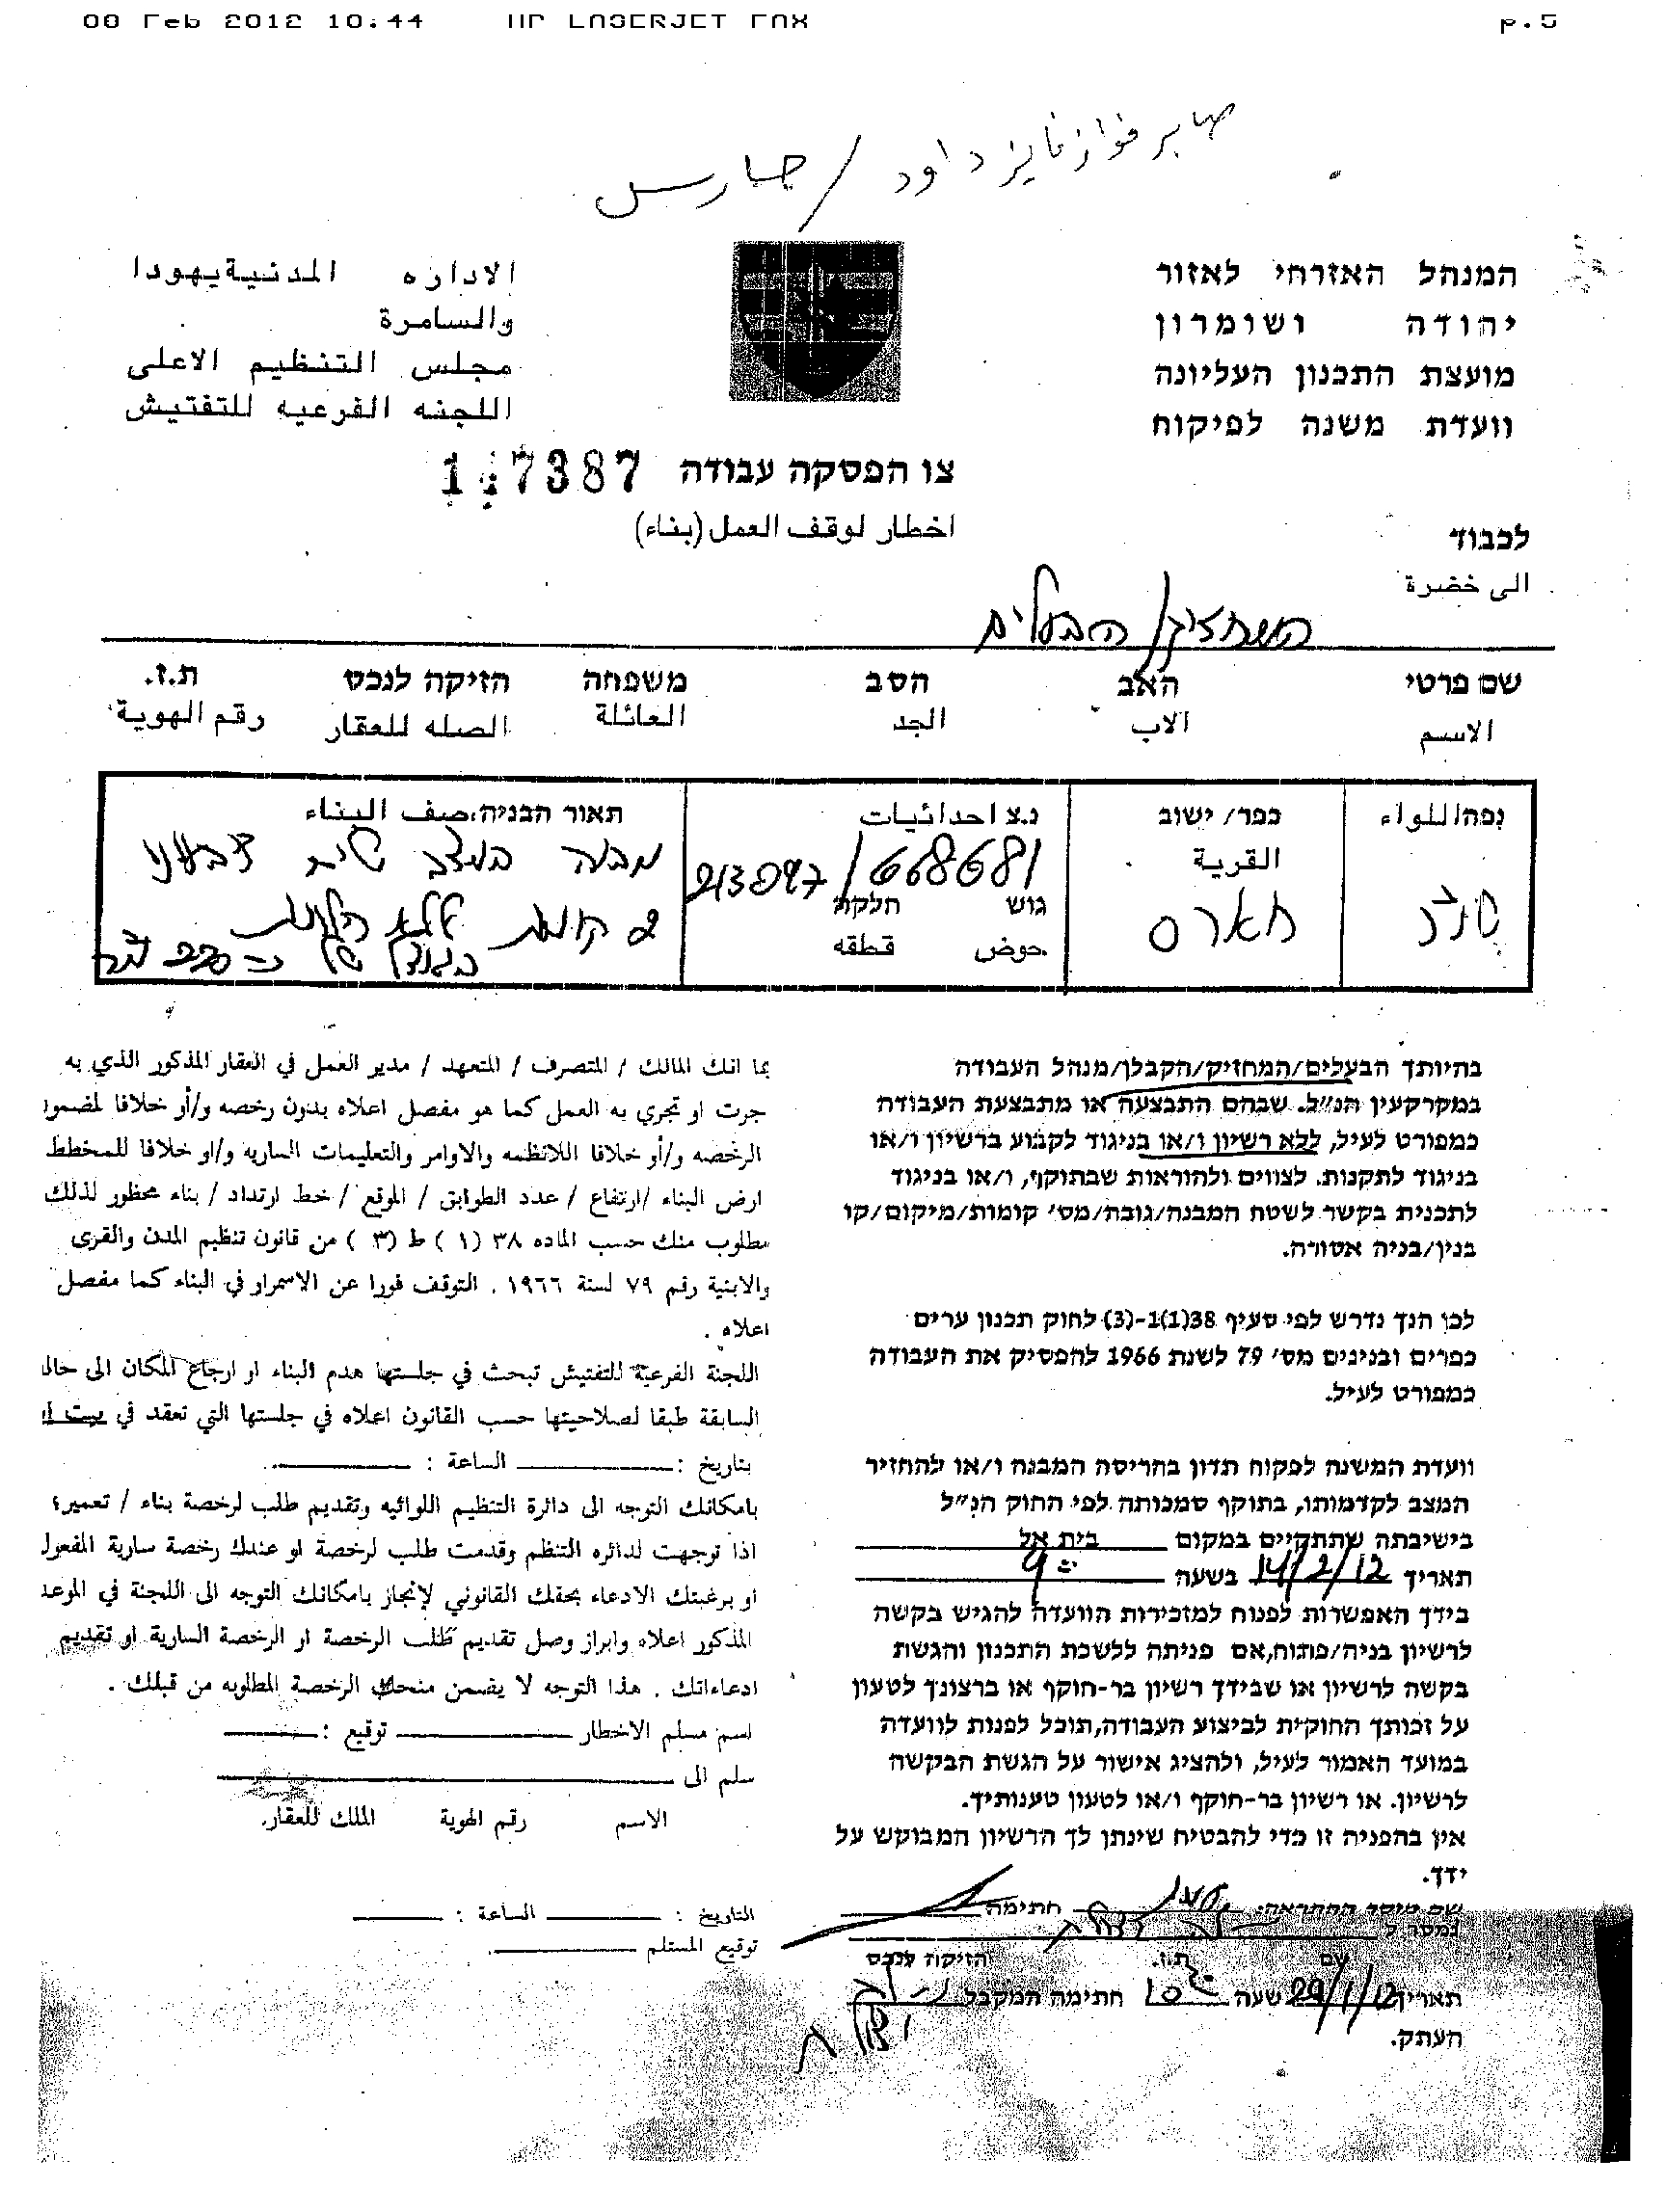 08 Feb 2012 10:44 HP LASERJET FAX p.5
صابر فواز فايز داود / حارس
המנהל האזרחי לאזור
יהודה ושומרון
מועצת התכנון העליונה
וועדת משנה לפיקוח
الاداره المدنية يهودا
والسامرة
مجلس التنظيم الاعلى
اللجنه الفرعيه للتفتيش
צו הפסקה עבודה 147387
اخطار لوقف العمل (بناء)
לכבוד
الى خضرة
המחזיק / הבעלים
שם פרטי האב הסב משפחה הזיקה לנכס ת.ז.
الاسم الاب الجد العائلة الصله للعقار رقم الهوية
נפה اللواء
כפר/ ישוב
القرية
חארס
נ.צ احداثيات
213097/668681
גוש חלקה
حوض قطعه
תאור הבניה، صف البناء
מבנה במצב שלד
2 קומות ללא
בהיותך הבעלים/המחזיק/הקבלן/מנהל העבודה
במקרקעין הנ"ל. שבהם התבצעה או מתבצעת העבודה
כמפורט לעיל, ללא רשיון ו/או בניגוד לקבוע ברשיון ו/או
בניגוד לתקנות. לצווים ולהוראות שבתוקף, ו/או בניגוד
לתכנית בקשר לשטח המבנה/גובה/מס' קומות/מיקום/קו
בנין/בניה אסורה.
לכן הנך נדרש לפי סעיף 38(1)1-(3) לחוק תכנון ערים
כפרים ובנינים מס' 79 לשנת 1966 להפסיק את העבודה
כמפורט לעיל.
וועדת המשנה לפקוח תדון בהריסה המבנה ו/או להחזיר
המצב לקדמותו, בתוקף סמכותה לפי החוק הנ"ל
בישיבתה שתתקיים במקום בית אל
תאריך 14/2/12 בשעה 9:00
בידך האפשרות לפנות למזכירות הוועדה להגיש בקשה
לרשיון בניה/פתוח, אם פניתה ללשכת התכנון והגשת
בקשה לרשיון או שבידך רשיון בר-חוקף או ברצונך לטעון
על זכותך החוקית לביצוע העבודה, תוכל לפנות לוועדה
במועד האמור לעיל, ולהציג אישור על הגשת הבקשה
לרשיון. או רשיון בר-חוקף ו/או לטעון טענותיך.
אין בהפניה זו כדי להבטיח שינתן לך הרשיון המבוקש על
ידך.
שם מוסר ההתראה: חתימה
נמסר ל
שם ת.ז. הזיקה לנכס
תאריך 29/1/12 שעה חתימה המקבל
העתק.
بما انك المالك / المتصرف / المتعهد / مدير العمل في العقار المذكور الذي به
جرت او تجري به العمل كما هو مفصل اعلاه بدون رخصه و/أو خلافا لمضمون
الرخصه و/أو خلافا اللانظمه والاوامر والتعليمات الساريه و/او خلافا للمخطط
ارض البناء /ارتفاع / عدد الطوابق / الموقع / خط ارتداد / بناء محظور لذلك
مطلوب منك حسب الماده ٣٨ (١ ) ط (٣ ) من قانون تنظيم المدن والقرى
والابنية رقم ٧٩ لسنة ١٩٦٦ . التوقف فورا عن الاسمرار في البناء كما مفصل
اعلاه .
اللجنة الفرعية للتفتيش تبحث في جلستها هدم البناء او ارجاع المكان الى حال
السابقة طبقا لصلاحيتها حسب القانون اعلاه في جلستها التي تعقد في بيت
بتاريخ : الساعة :
بامكانك التوجه الى دائرة التنظيم اللوائيه وتقديم طلب لرخصة بناء / تعمير؛
اذا توجهت لدائره التنظم وقدمت طلب لرخصة او عندك رخصة سارية المفعول
او برغبتك الادعاء بحقك القانوني لإنجاز بامكانك التوجه الى اللجنة في الموعد
المذكور اعلاه وابراز وصل تقديم طلب الرخصة او الرخصة السارية او تقديم
ادعاءاتك . هذا التوجه لا يضمن منحك الرخصة المطلوبه من قبلك .
اسم مسلم الاخطار توقيع :
سلم الى
الاسم رقم الهوية الملك للعقار.
التاريخ : الساعة :
توقيع المستلم